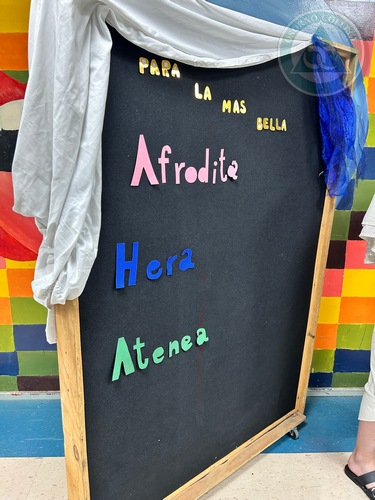 PARA
LA MAS
BELLA
Afrodita
Hera
Atenea